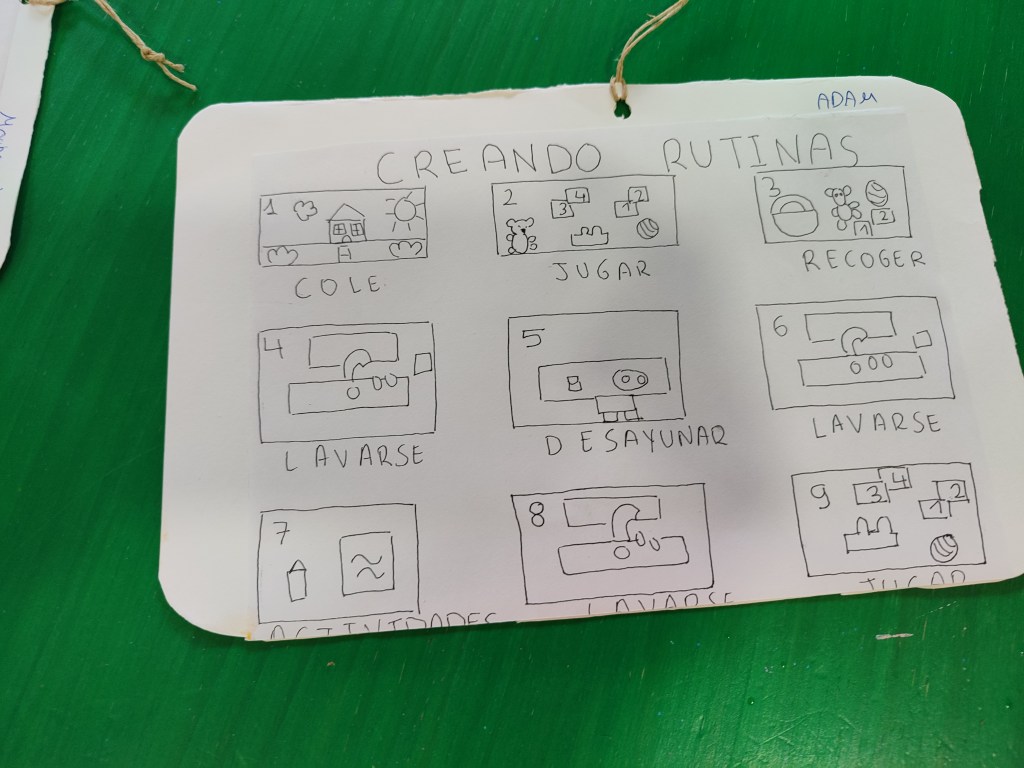 ADAM
CREANDO RUTINAS
1
COLE
2
3 4 1 2
JUGAR
3
1 2
RECOGER
4
LAVARSE
5
DESAYUNAR
6
LAVARSE
7
ACTIVIDADES
8
LAVARSE
9
3 4 1 2
JUGAR